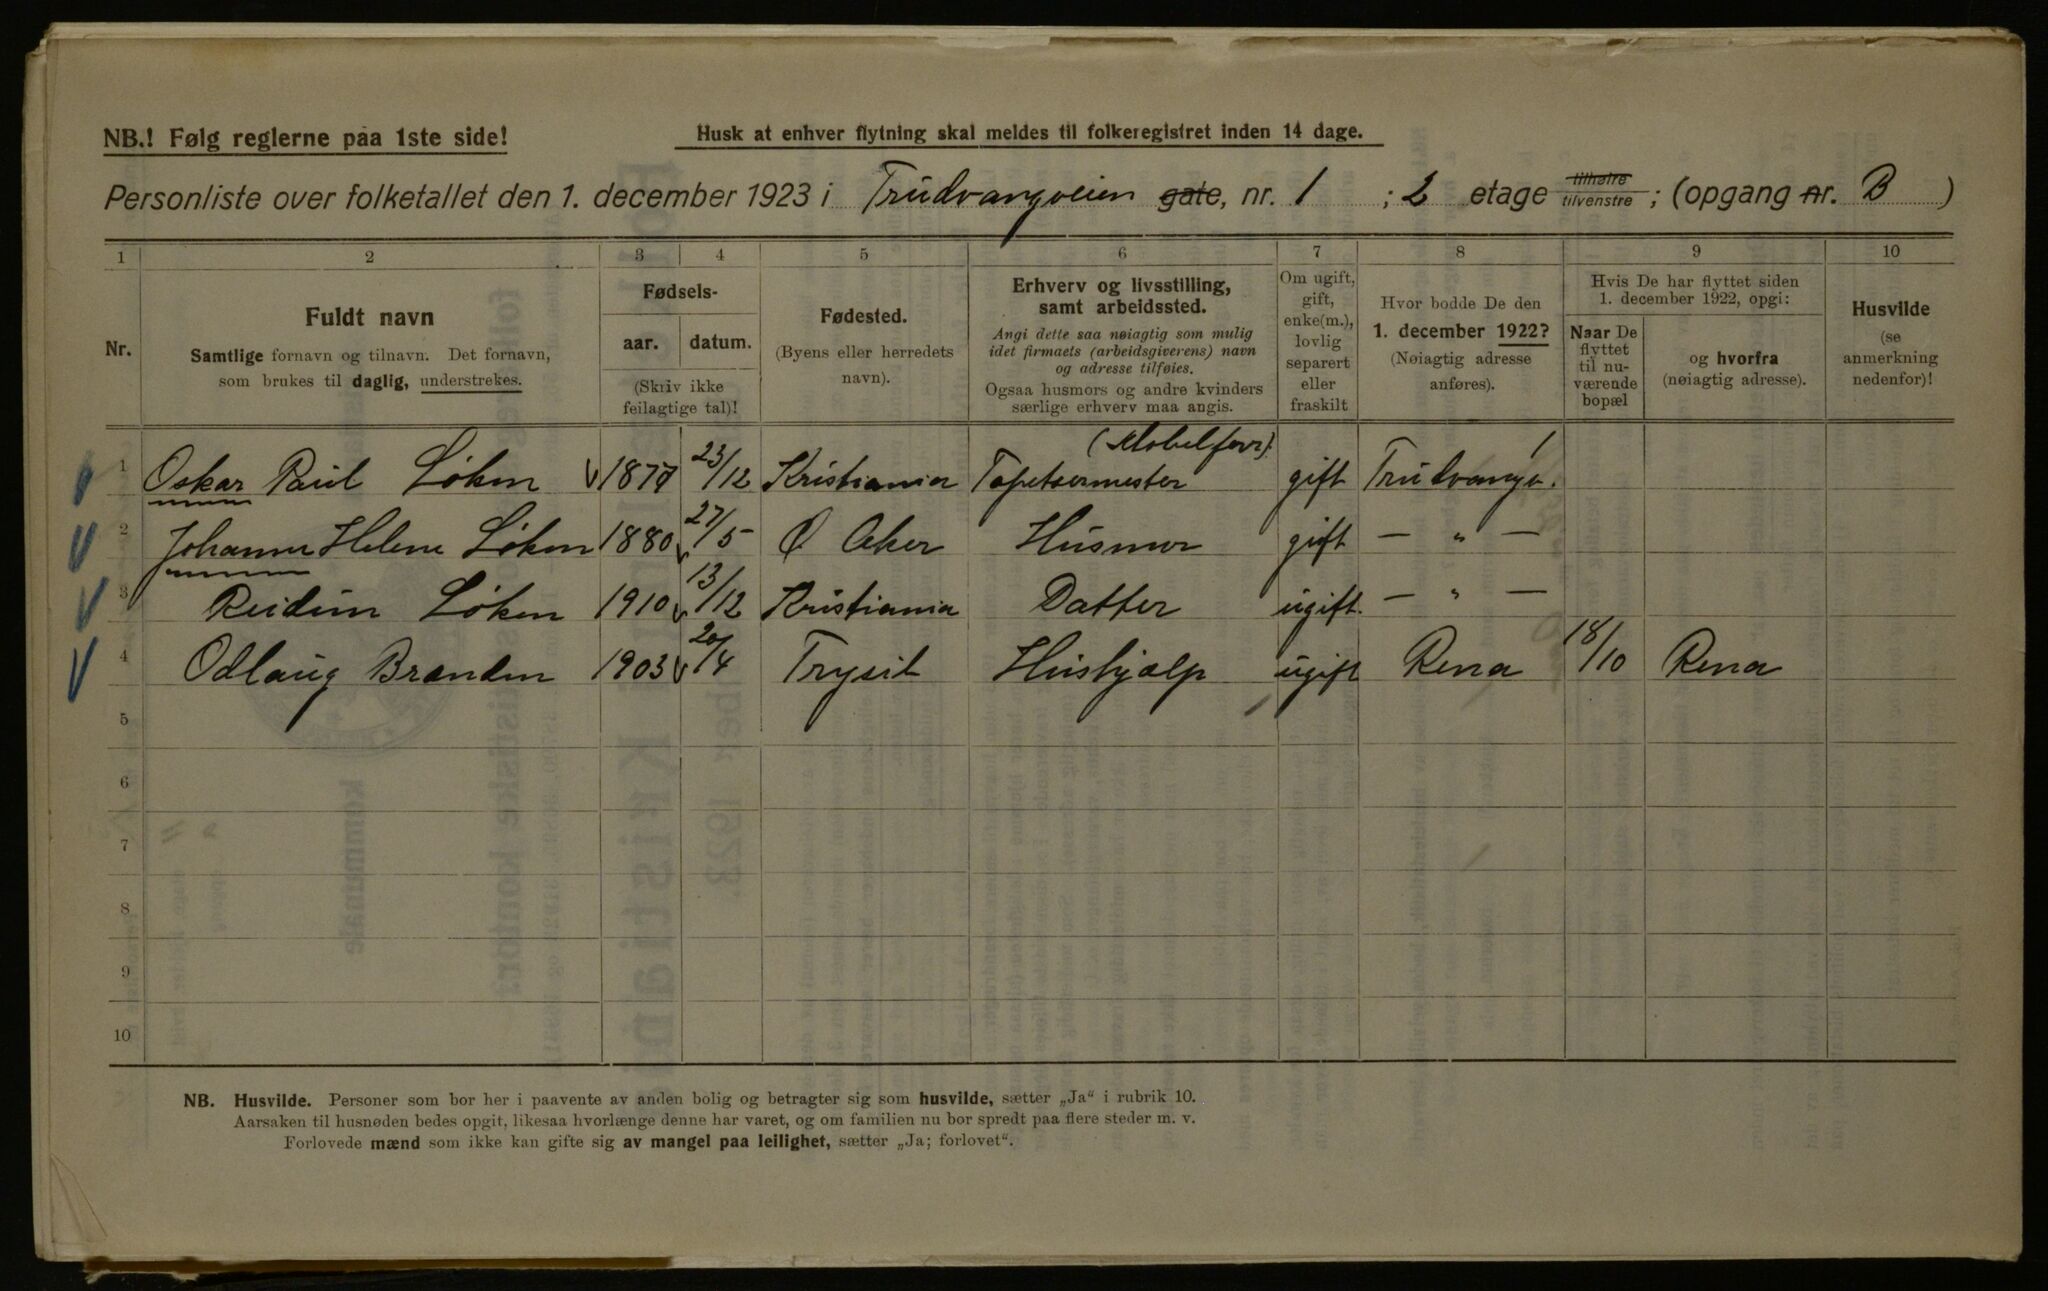 NB.! Følg reglerne paa 1ste side!
Husk at enhver flytning skal meldes til folkeregistret inden 14 dage.
Personliste over folketallet den 1. december 1923 i Trudvangveien gate, nr. 1 ; 2 etage tilhøire tilvenstre ; (opgang nr. B )
1 2 3 4 5 6 7 8 9 10
Nr.
Fuldt navn
Samtlige fornavn og tilnavn. Det fornavn,
som brukes til daglig, understrekes.
Fødsels-
aar. datum.
(Skriv ikke
feilagtige tal)!
Fødested.
(Byens eller herredets
navn).
Erhverv og livsstilling,
samt arbeidssted.
Angi dette saa nøiagtig som mulig
idet firmaets (arbeidsgiverens) navn
og adresse tilføies.
Ogsaa husmors og andre kvinders
særlige erhverv maa angis.
Om ugift,
gift,
enke(m.),
lovlig
separert
eller
fraskilt
Hvor bodde De den
1. december 1922?
(Nøiagtig adresse
anføres).
Hvis De har flyttet siden
1. december 1922, opgi:
Naar De
flyttet
til nu-
værende
bopæl
og hvorfra
(nøiagtig adresse).
Husvilde
(se
anmerkning
nedenfor)!
1 Oskar Paul Løken 1877 23/12 Kristiania Tapetsermester (Møbelforr). gift Trudvangv. 1
2 Johanne Helene Løken 1880 27/5 Ø Aker Husmor gift — " —
3 Reidun Løken 1910 13/12 Kristiania Datter ugift. — " —
4 Odlaug Brænden 1903 20/4 Trysil Hushjælp ugift Rena 18/10 Rena
5
6
7
8
9
10
NB. Husvilde. Personer som bor her i paavente av anden bolig og betragter sig som husvilde, sætter „Ja“ i rubrik 10.
Aarsaken til husnøden bedes opgit, likesaa hvorlænge denne har varet, og om familien nu bor spredt paa flere steder m. v.
Forlovede mænd som ikke kan gifte sig av mangel paa leilighet, sætter „Ja; forlovet“.